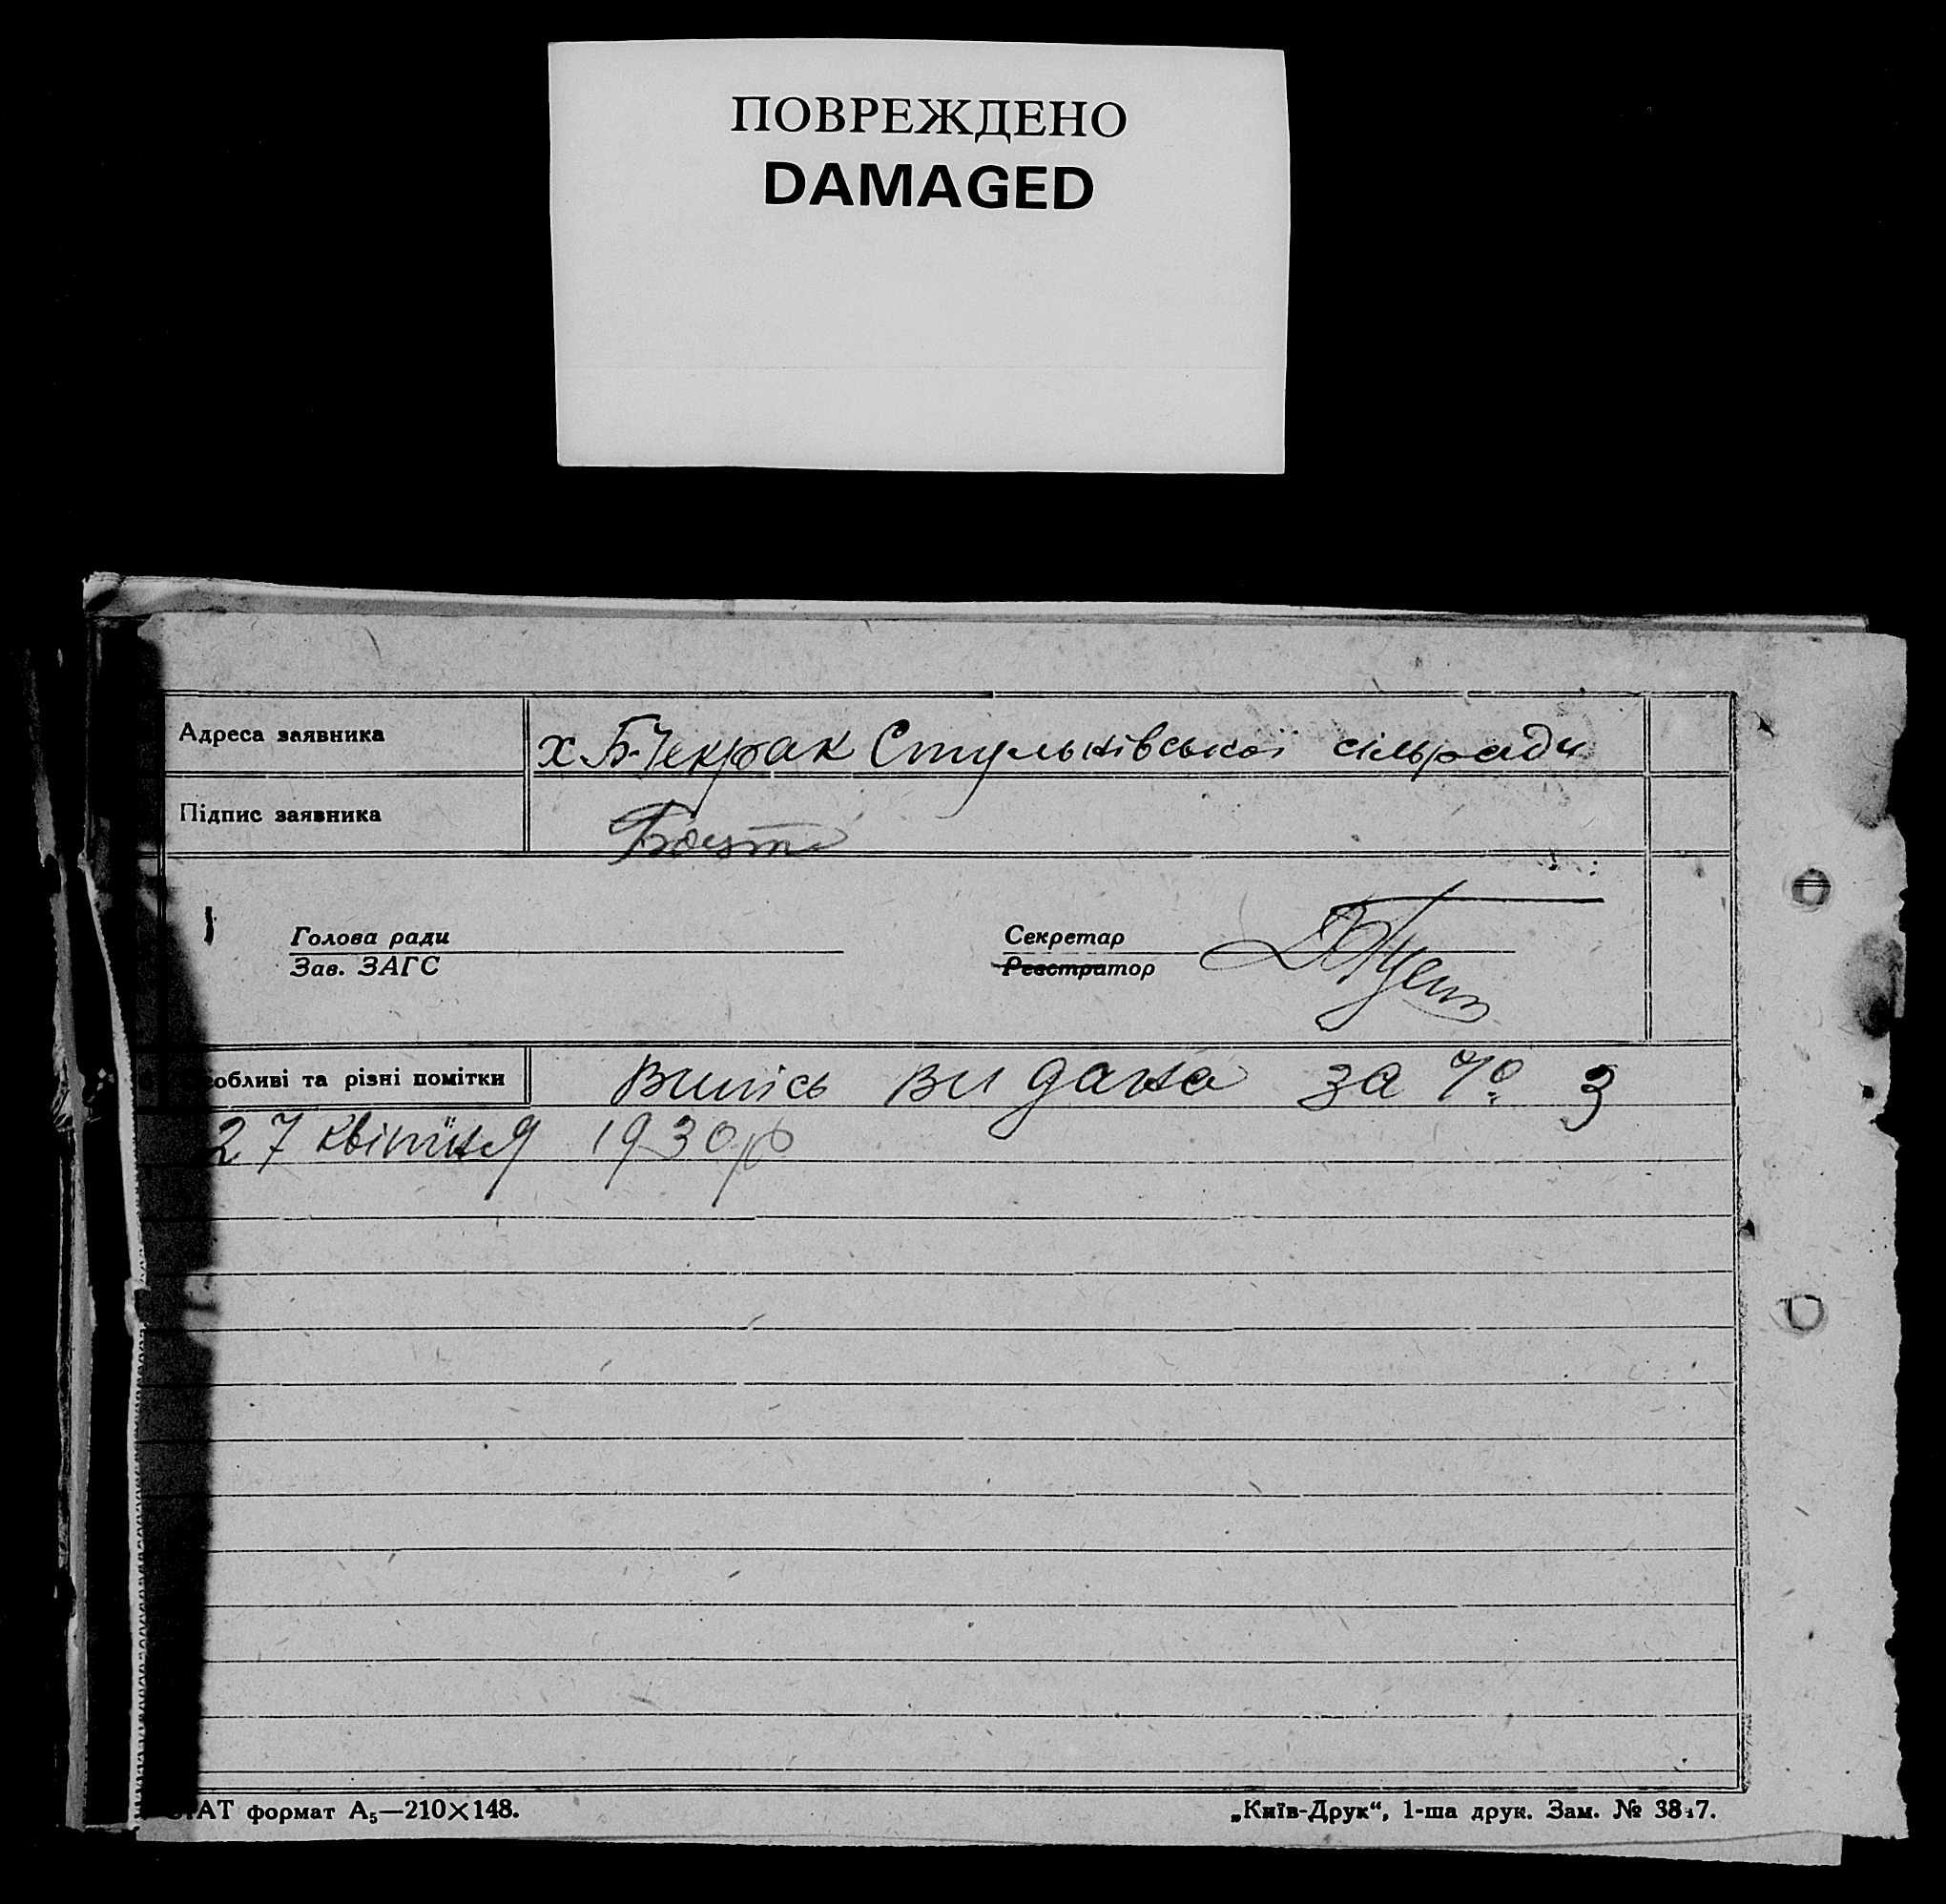 ПОВРЕЖДЕНО
DAMAGED
Адреса заявника х. Б-Чекрак Стульнівської сільради
Підпис заявника
Голова ради
Зав. ЗАГС
Секретар
Реєстратор
собливі та різні помітки випісь видана за № 3
27 квітня 1930 р
ТАТ формат А5—210×148.
„Київ-Друк“, 1-ша друк. Зам. № 38 7.